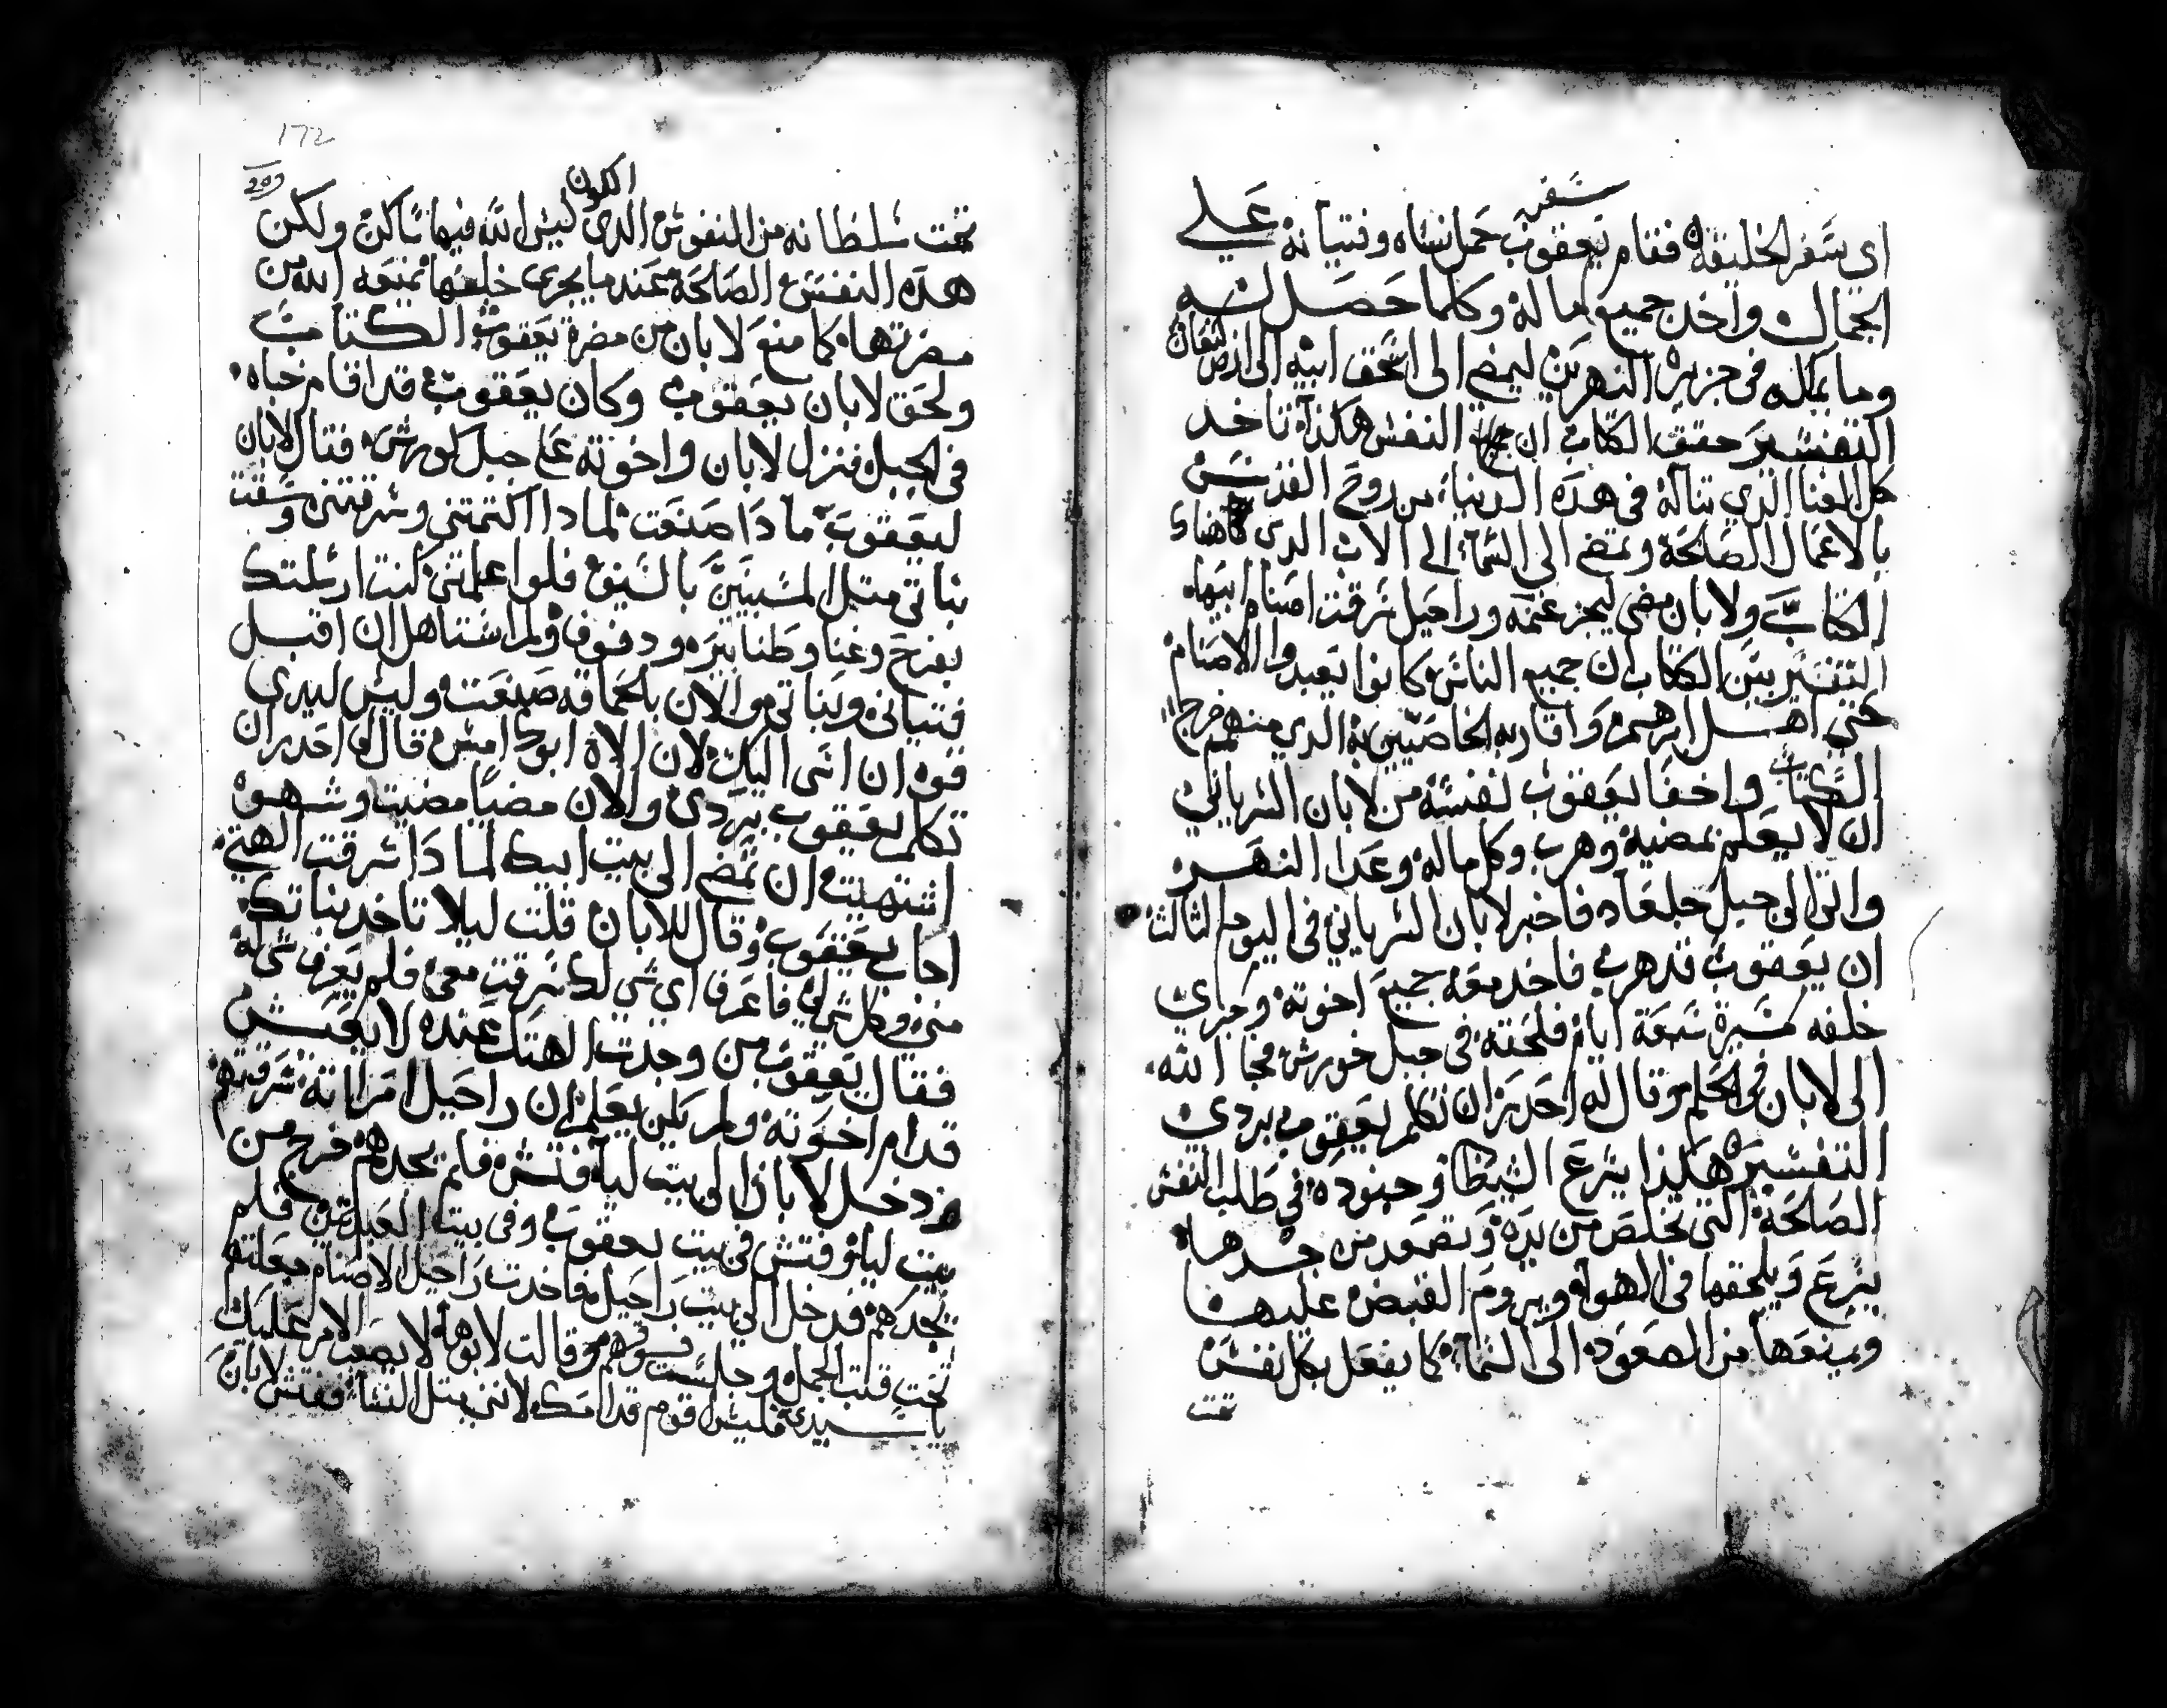 سفر
اي سفر الخليقة فقام يعقوب حمل نساه وفتيانه علي
الجمال واخد جميع ماله وكلما حصل له
وما يملكه في جزيرة النهرين ليمضي الى اسحق ابيه الى ارض كنعان
التفسير حقق الكتاب ان النفس هكذا تاخد
كل الغنا الذي تناله في هده الدنيا من روح القدس
بالاعمال الصالحة وتمضي الي السما الي الاب الدي هناك
الكتاب ولابان مضي ليجز غنمه وراحيل سرقت اصنام ابيها
التفسير بين الكتاب ان جميع الناس كانوا يعبدوا الاصنام
حتي اهل ابرهيم واقاربه الخاصيين به الدي منهم خرج
الكتاب واخفا يعقوب نفسه من لابان السرياني
ان لا يعلم بمضيه وهرب وكل ماله وعدا النهر
واتى الى جبل جلعاد فاخبر لابان السرياني في اليوم الثالث
ان يعقوب قد هرب فاخد معه جميع اخوته وجري
خلفه مسيرة سبعة ايام فلحقه في جبل خورش فجا الله
الى لابان في الحلم وقال له احدر ان تكلم يعقوب بردي
التفسير هكذا يسرع الشيطان وجنوده في طلب النفس
الصالحة التي تخلص من يده وتصعد من جسدها
يسرع ويلحقها في الهوا ويروم القبض عليها
ويمنعها من الصعود الى السما كما يفعل بكل نفس
تحت
172
209
الكون
تحت سلطانه من النفوس الدي ليس الله فيها ساكن ولكن
هده النفس الصالحة عند ما يجري خلفها يمنعه الله من
مضرتها كما منع لابان من مضرة يعقوب الكتاب
ولحق لابان يعقوب وكان يعقوب قد اقام خباه
في الجبل فنزل لابان واخوته على جبل خورش فقال لابان
ليعقوب ما دا صنعت لما دا اكتمتني وسرقتني وسقت
بناتي متل المسبيين بالسيف فلوا علمتني كنت ارسلتك
بفرح وغنا وطنابير ودفوف ولم استاهل ان اقبل
فتياني وبناتي والان بالحماقه صنعت وليس ليدي
قوه ان اسي اليك لان الاه ابوك امس قال لي احدر ان
تكلم يعقوب بردي والان مضيا مضيت وشهوة
اشتهيت ان تمضي الى بيت ابيك لما دا سرقت الهتي
اجاب يعقوب وقال للابان قلت ليلا تاخد بناتك
مني وكل شي لي فاعرف اي شي لك سرقت معي فلم يعرف شي له
فقال يعقوب من وجدت الهتك عنده لا يعيش
قدام اخوته ولم يكن يعلم ان راحيل امراته سرقتهم
ودخل لابان الى بيت ليا فتش فلم يجدهم خرج من
بيت ليا وفتش في بيت يعقوب وفي بيت العبدتين فلم
يجدهم فدخل الي بيت راحيل فاخدت راحيل الاصنام جعلتهم
تحت قتب الجمل وجلست فوقهم وقالت لابوها لا يصعب الامر عليك
يا سيدي فليس اقوم قدامك لانني متل النسا ففتش لابان